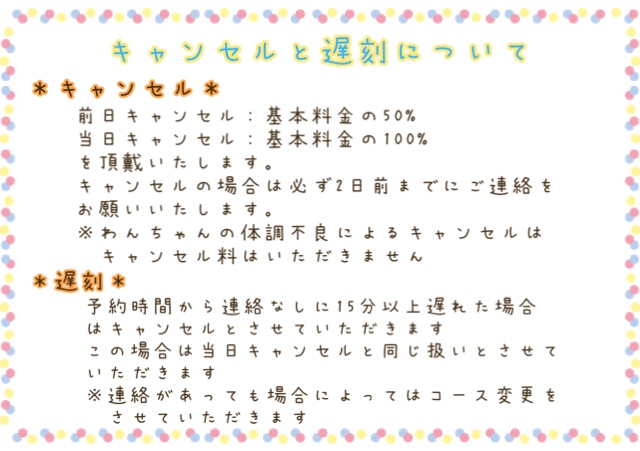 キャンセルと遅刻について
*キャンセル*
前日キャンセル：基本料金の50%
当日キャンセル：基本料金の100%
を頂戴いたします。
キャンセルの場合は必ず2日前までにご連絡を
お願いいたします。
※わんちゃんの体調不良によるキャンセルは
キャンセル料はいただきません
*遅刻*
予約時間から連絡なしに15分以上遅れた場合
はキャンセルとさせていただきます
この場合は当日キャンセルと同じ扱いとさせて
いただきます
※連絡があっても場合によってはコース変更を
させていただきます